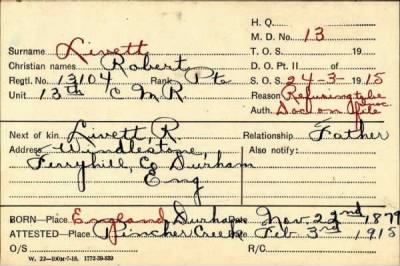 H. Q.
M. D. No. 13
Surname Livett
Christian names Robert
T. O. S. 19
Regtl. No. 13104 Rank Pte
D. O. Pt. II of
Unit 13th C M R.
S. O. S. 24-3- 1915
Reason Refusing to be
Auth. Doc on file
Next of kin Livett, R. Relationship Father
Address Windlestone, Also notify:
Ferryhill, Co Durham
Eng
BORN—Place England, Durham Date Nov. 22nd 1879
ATTESTED—Place Pincher Creek Date Feb 3rd 1915
O/S R/C
W. 22-100M-7-18. 1772-39-839